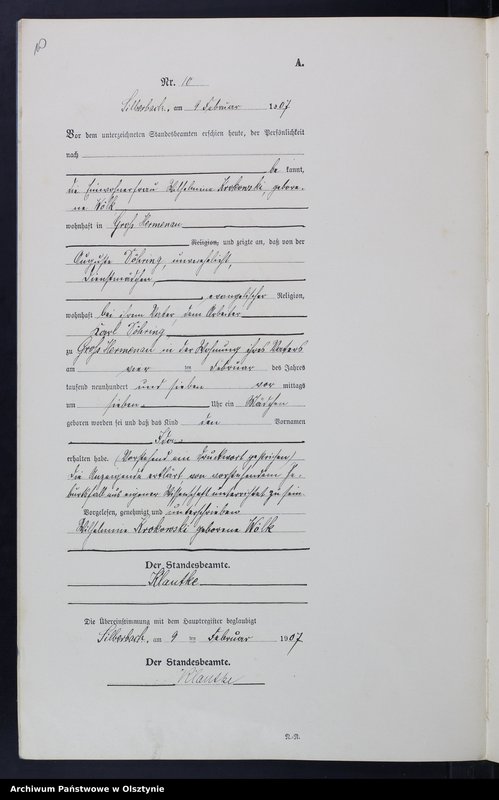 10
A.
Nr. 10
Silberbach, am 9 Februar 1907
Vor dem unterzeichneten Standesbeamten erschien heute, der Persönlichkeit
nach
be kannt,
die Einwohnerfrau Wilhelmine Krokowski, gebore-
ne Wölk
wohnhaft in Groß Hermenau
Religion, und zeigte an, daß von der
Auguste Döhring, unverehelicht,
Dienstmädchen,
evangelischer Religion,
wohnhaft bei ihrem Vater, dem Arbeiter
Karl Döhring
zu Groß Hermenau in der Wohnung ihres Vaters
am vier ten Februar des Jahres
tausend neunhundert und sieben vor mittags
um sieben Uhr ein Mädchen
geboren worden sei und daß das Kind den Vornamen
Ida
erhalten habe. (Vorstehend ein Druckwort gestrichen)
Die Anzeigende erklärt von vorstehendem Ge-
burtsfall aus eigener Wissenschaft unterrichtet zu sein.
Vorgelesen, genehmigt und unterschrieben
Wilhelmine Krokowski geborene Wölk
Der Standesbeamte.
Klautke
Die Übereinstimmung mit dem Hauptregister beglaubigt
Silberbach, am 9 ten Februar 1907
Der Standesbeamte.
Klautke
N.-N.
Archiwum Państwowe w Olsztynie